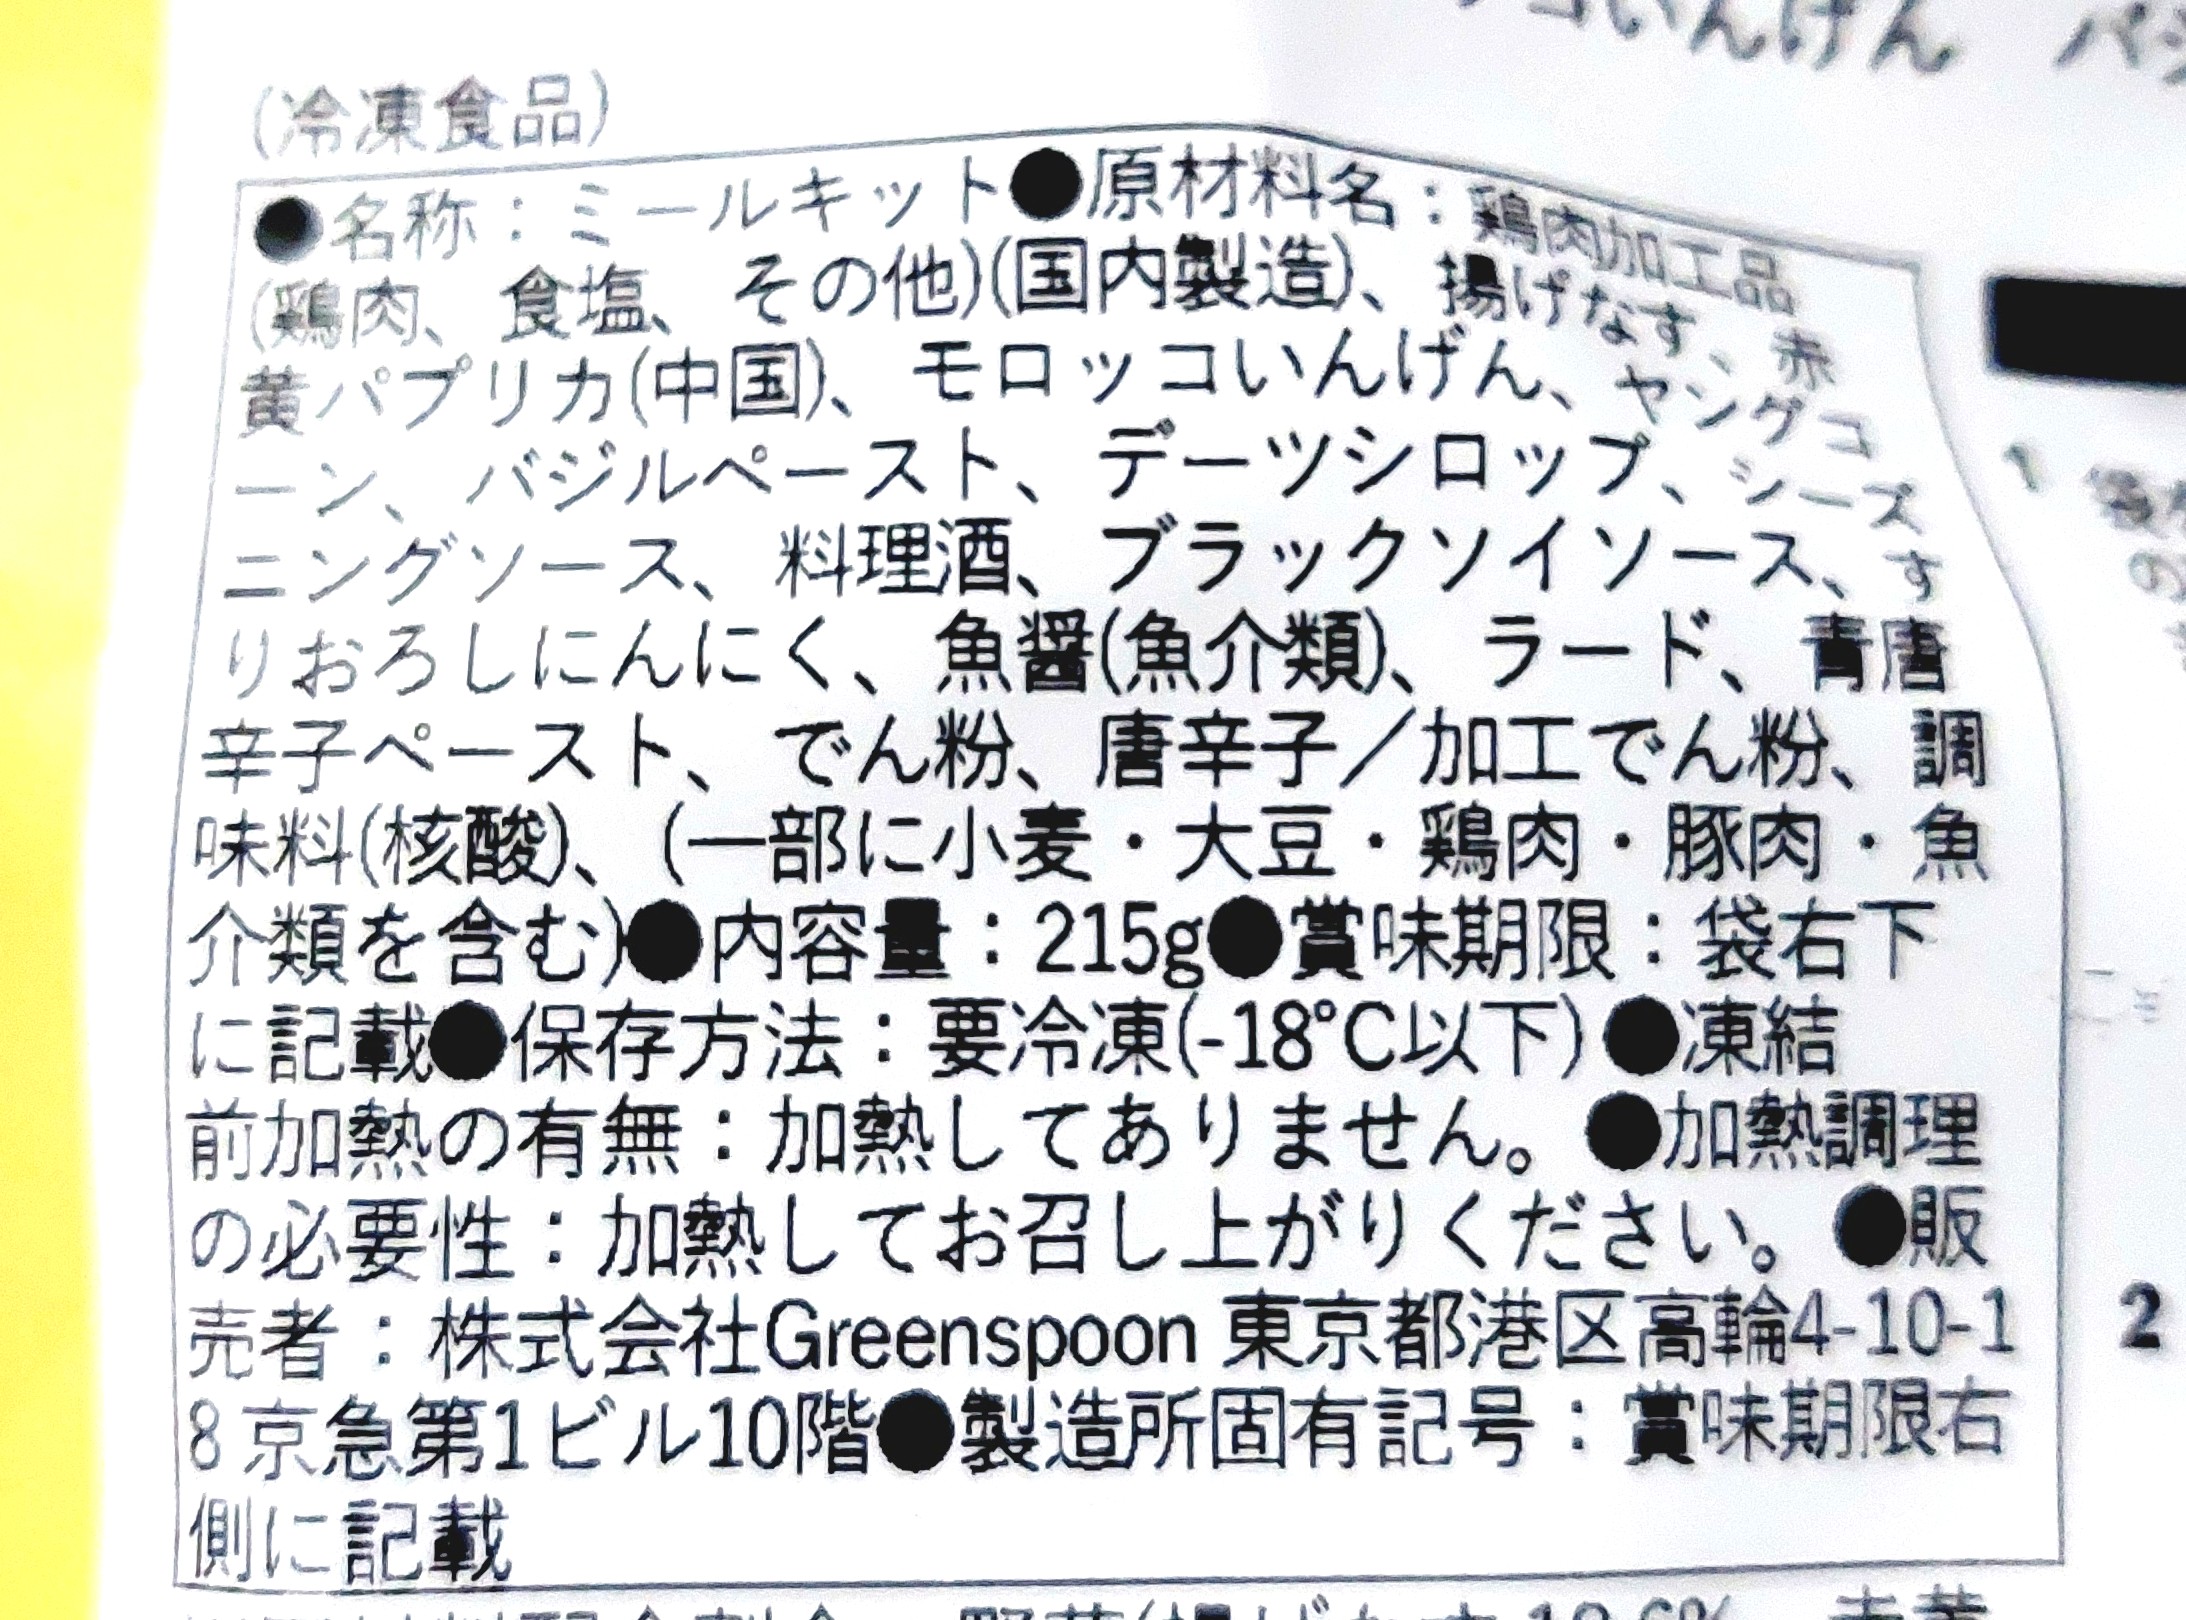 コいんげん バジ
(冷凍食品)
●名称：ミールキット●原材料名：鶏肉加工品
(鶏肉、食塩、その他)(国内製造)、揚げなす、赤
黄パプリカ(中国)、モロッコいんげん、ヤングコ
ーン、バジルペースト、デーツシロップ、シーズ
ニングソース、料理酒、ブラックソイソース、す
りおろしにんにく、魚醤(魚介類)、ラード、青唐
辛子ペースト、でん粉、唐辛子／加工でん粉、調
味料(核酸)、(一部に小麦・大豆・鶏肉・豚肉・魚
介類を含む)●内容量：215g●賞味期限：袋右下
に記載●保存方法：要冷凍(-18℃以下)●凍結
前加熱の有無：加熱してありません。●加熱調理
の必要性：加熱してお召し上がりください。●販
売者：株式会社Greenspoon 東京都港区高輪4-10-1
8 京急第1ビル10階●製造所固有記号：賞味期限右
側に記載
1
の
2